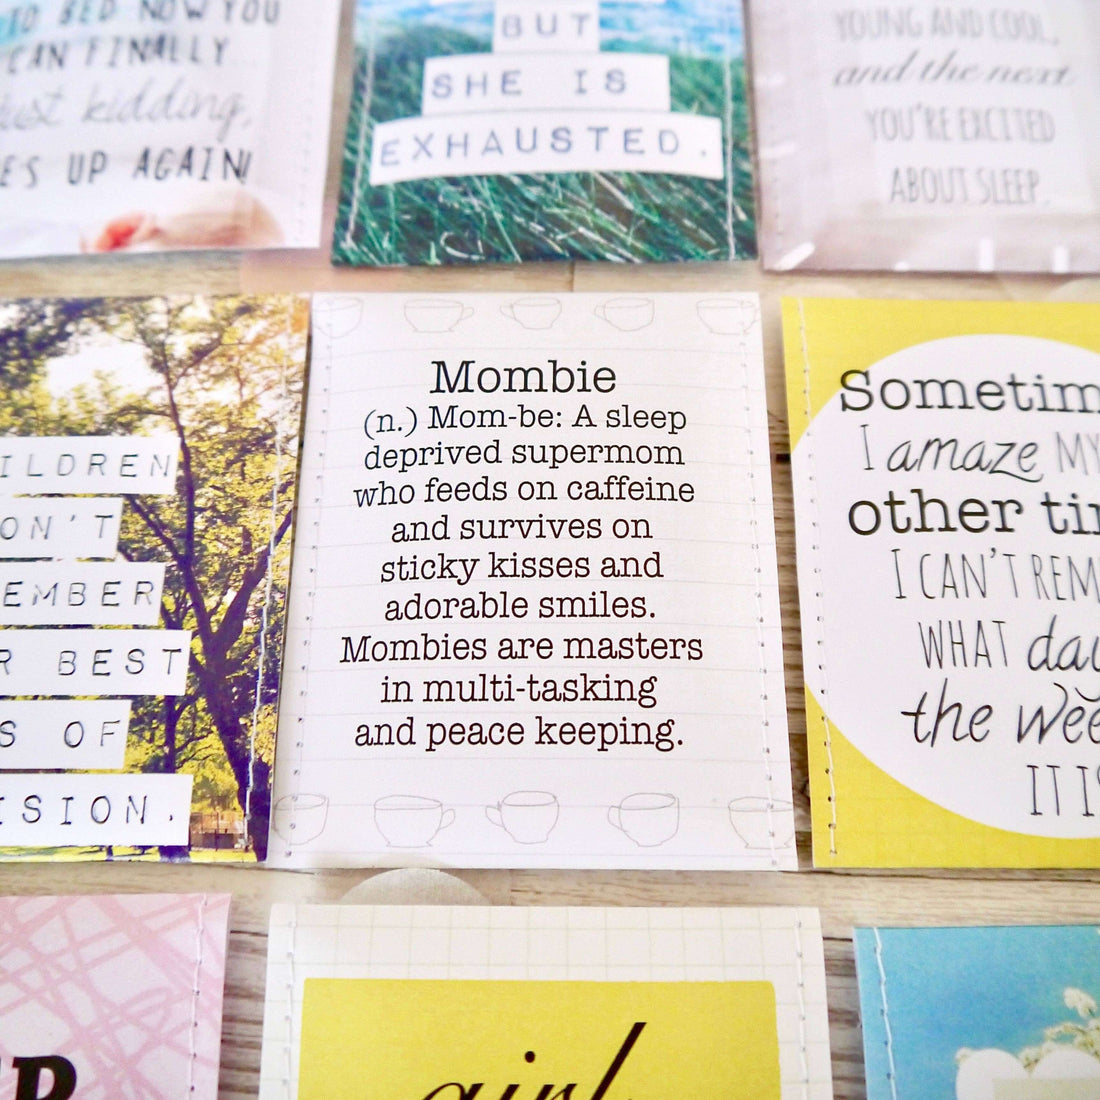 TO BED NOW YOU
CAN FINALLY
just kidding,
UP AGAIN!
BUT
SHE IS
EXHAUSTED.
YOUNG AND COOL,
and the next
YOU'RE EXCITED
ABOUT SLEEP.
ILDREN
ON'T
EMBER
R BEST
S OF
ISION.
Mombie
(n.) Mom-be: A sleep
deprived supermom
who feeds on caffeine
and survives on
sticky kisses and
adorable smiles.
Mombies are masters
in multi-tasking
and peace keeping.
Sometim
I amaze MY
other tim
I CAN'T REM
WHAT day
the wee
IT IS
girl